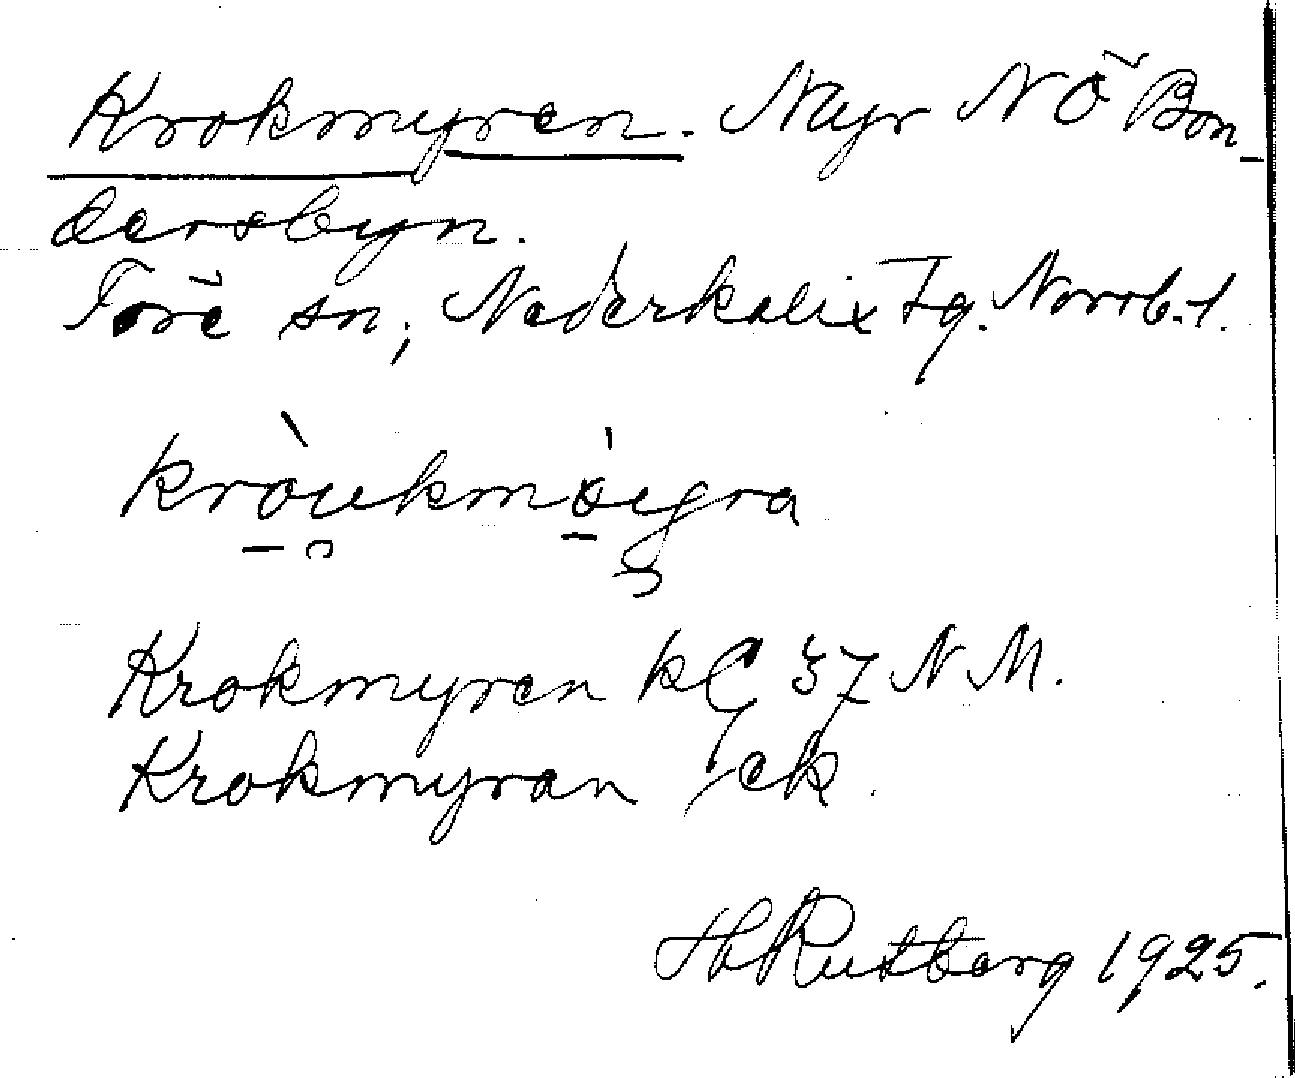 Krokmyren. Myr NÖ Bon-
dersbyn.
Töre sn, Nederkalix tg. Norrb. l.
kròukmöygra
Krokmyren k 37 NM.
Krokmyran ek.
Hh Rutberg 1925.